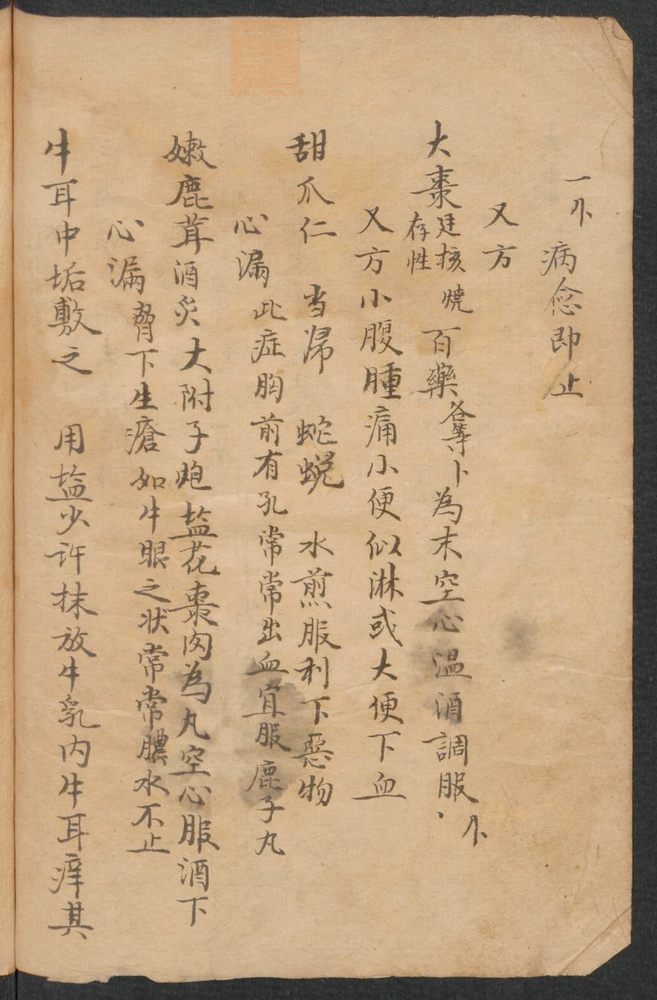 一卜 病念即止
又方
大棗廷核燒存性 百藥各等卜為末空心温酒調服卜
又方小腹腫痛小便似淋或大便下血
甜瓜仁 当归 蛇蜕 水煎服利下惡物
心漏此症胸前有孔常常出血宜服鹿子丸
嫩鹿茸酒炙大附子炮盐花棗肉為丸空心服酒下
心漏脅下生瘡如牛眼之状常常膿水不止
牛耳中垢敷之 用盐少许抹放牛乳内牛耳痒其